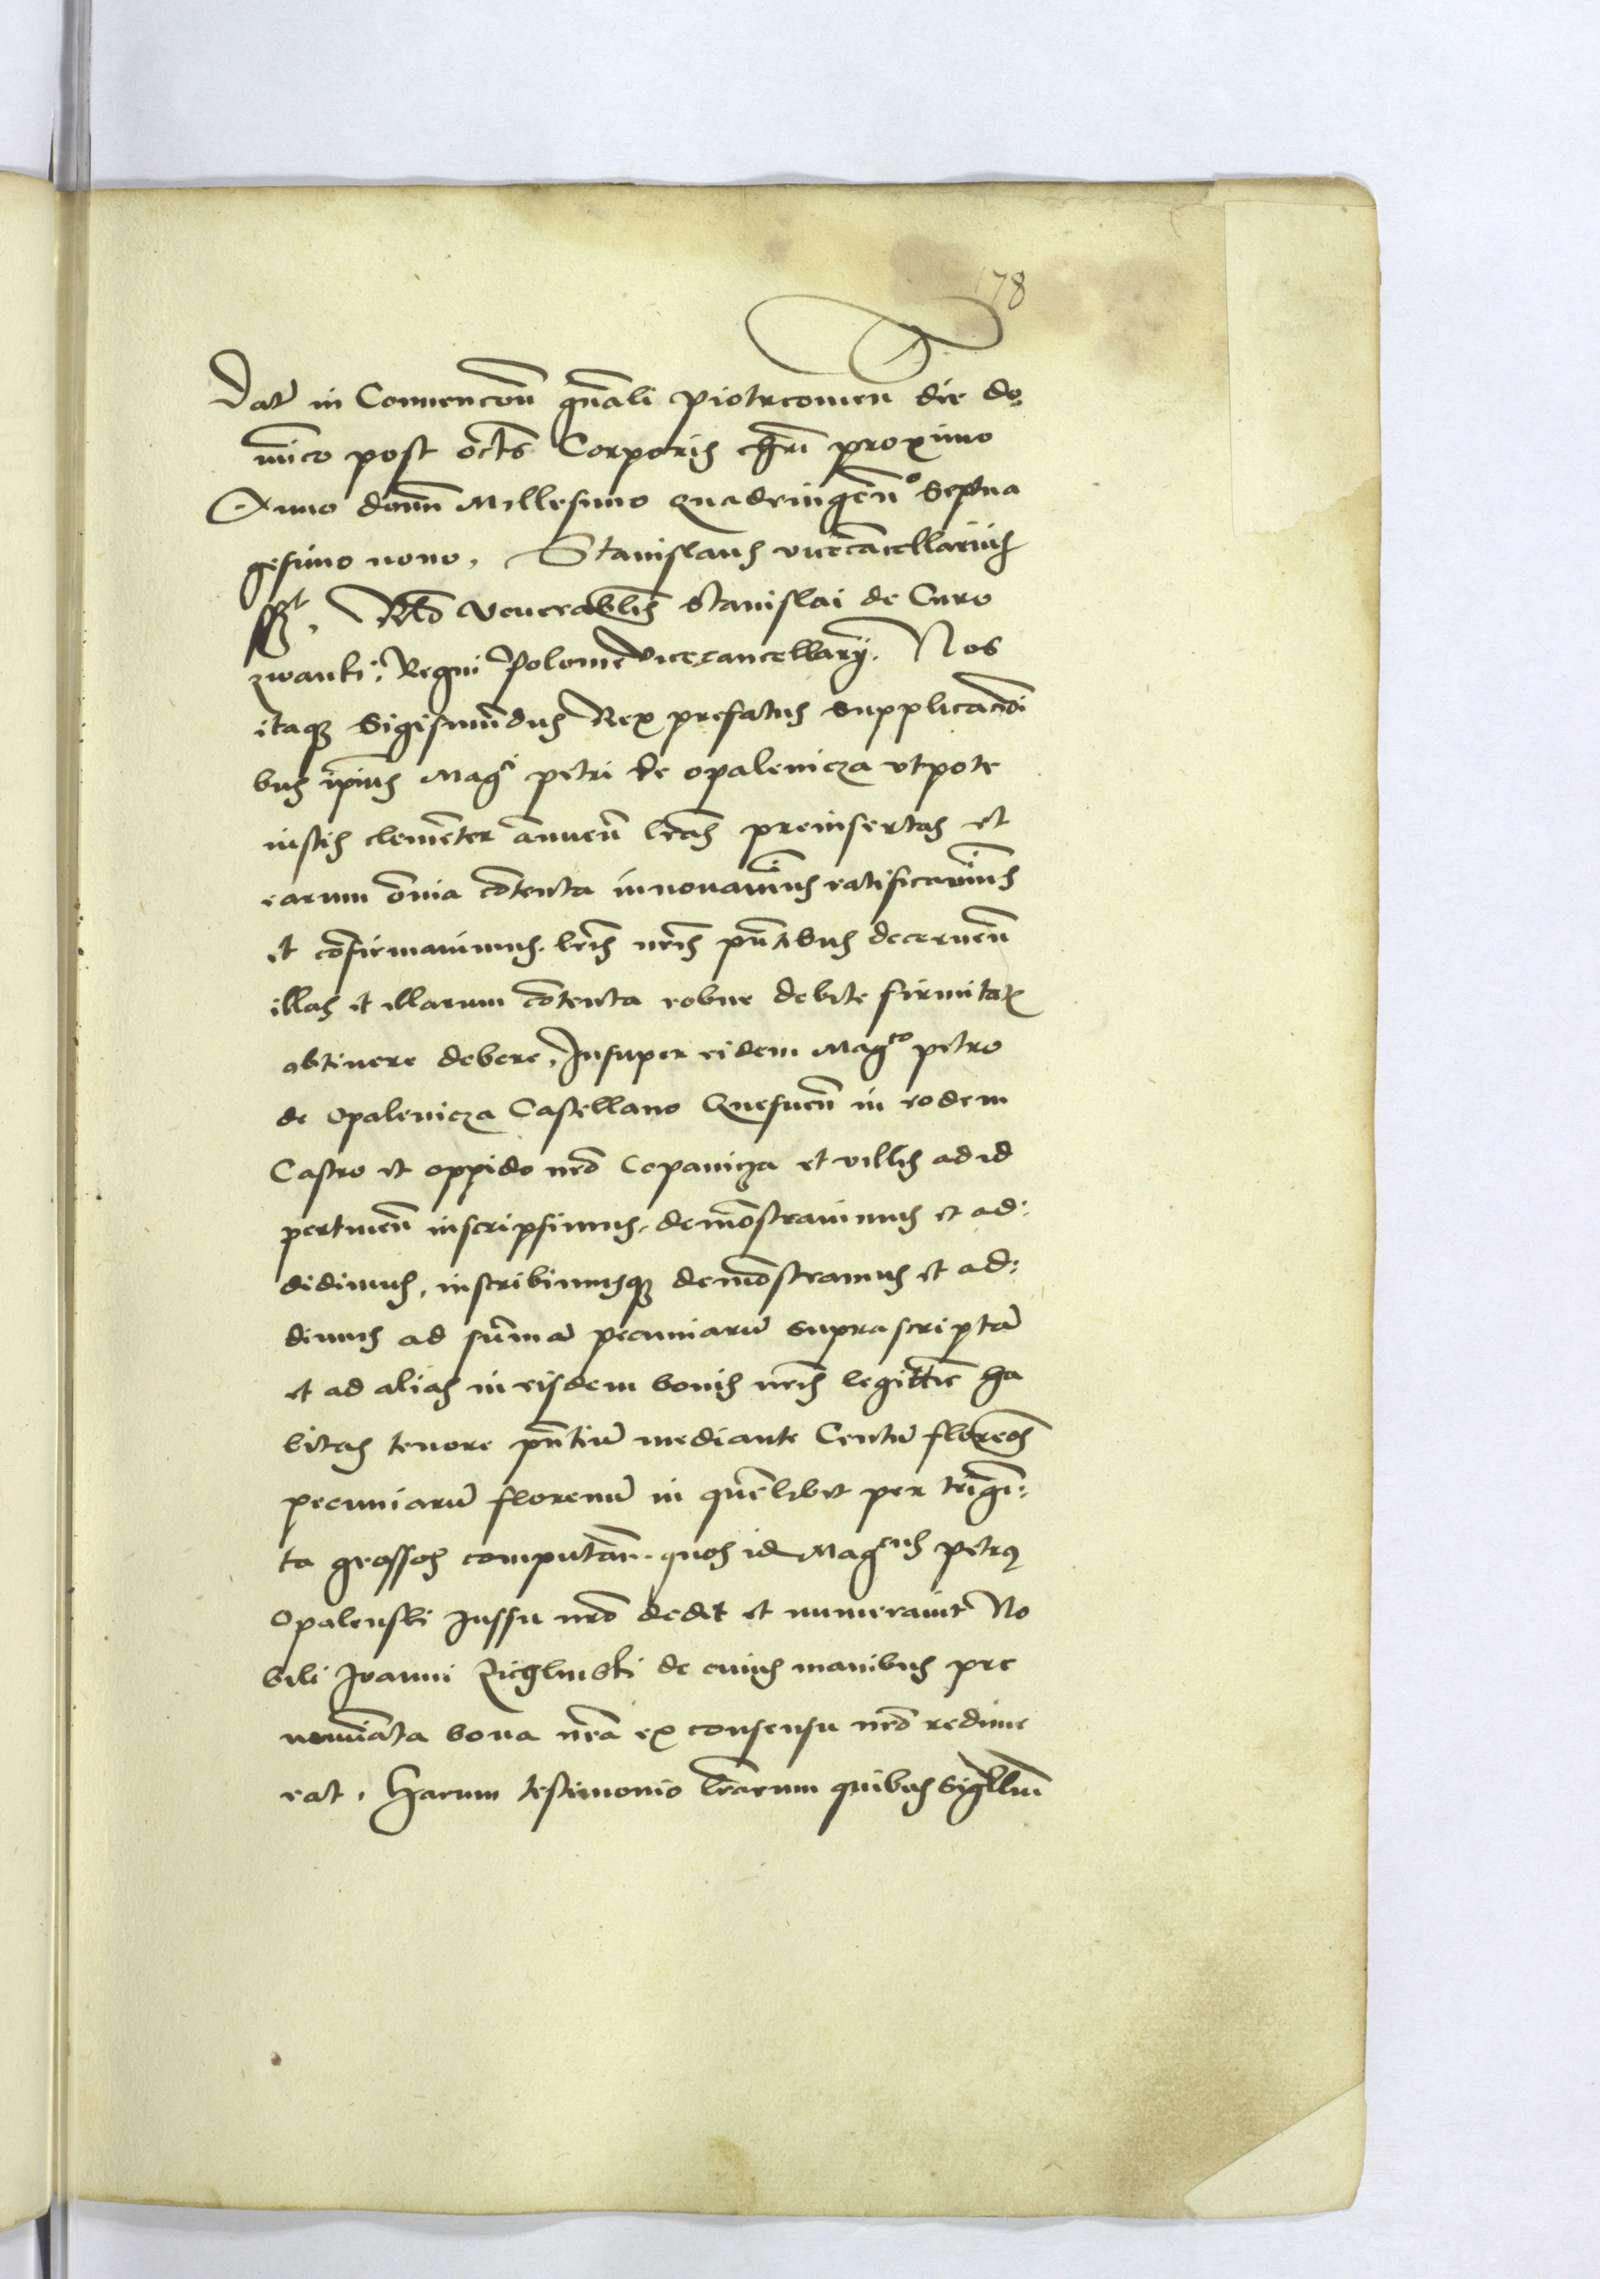 178
Dat in Convencōn gnāli piotrcovien die do
mīco post octs Corporis chri proximo
Anno domi Millesimo quadringen° Septua
gesimo nono, Stanislaus vicecancellarius
sst, Rlo venerablis Stanislai de Curo
zwanki: Regni Polonie vicecancellarij. Nos
itaq Sigismundus Rex prefatus supplicacōi
bus ipius Magci petri de opalenicza utpote
iustis clementer annuen lras preinsertas et
earum omia contenta innovavimus ratificavimus
et confirmavimus. lris nris pntibus decernen
illas et illarum contenta robur debite firmitat
obtinere debere, Insuper eidem Magco petro
de Opalenicza Castellano Gnesnen in eodem
Castro et oppido nro Copanicza et villis ad id
pertinen inscripsimus, demōstravimus et ad:
didimus, inscribimusq demōstramus et ad:
dimus ad summā pecuniarū suprascriptā
et ad alias in eisdem bonis nris legittie ha
bitas tenore pntiū mediante Centū florenos
pecuniarū florenū in quēlibet per trigī:
ta grossos computan. quos id Magcus petrus
Opalenski Jussu nro dedit et numeravit No
bili Joanni Zieglinski de cuius manibus pre
nomiata bona nra ex consensu nro redime
rat, Harum testimonio lrarum quibus Sigillū